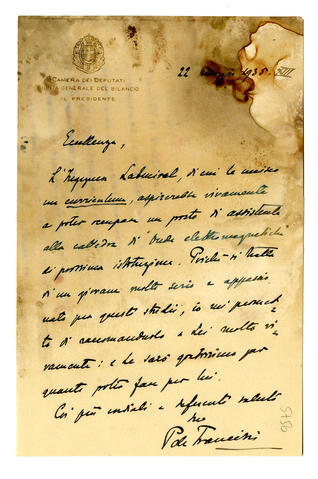 CAMERA DEI DEPUTATI
GIUNTA GENERALE DEL BILANCIO
IL PRESIDENTE
22 1935. XIII
Eccellenza,
L'Ingegnere Labmiral, di cui Le unisco
un curriculum, aspirerebbe vivamente
a poter occupare un posto di assistente
alla cattedra di Onde elettromagnetiche
di prossima istituzione. Poiché si tratta
di un giovane molto serio e appassio
nato per questi studii, io mi permet-
to di raccomandarlo a Lei molto vi-
vamente: e Le sarò gratissimo per
quanto potrà fare per lui.
Coi più cordiali e deferenti saluti
suo
P de Francisci
5756